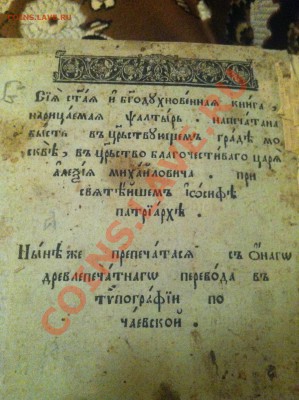 COINS.LAVE.RU
Сїѧ ст҃аѧ и҆ бг҃одꙋхновенная книга,
нарицаемая ѱалтырь напечатана
бысть въ цр҃ствꙋющемъ градѣ мо
сквѣ, въ цр҃ство благочестиваго царѧ
алеѯїа миха́йловича . при
свѧтѣйшемъ іѡсифѣ
патрїархѣ .
Нн҃ѣ же препечатасѧ съ ѻнагѡ
древлепечатнагѡ перевода въ
тѷпографїи по
чаевской .
COINS.LAVE.RU